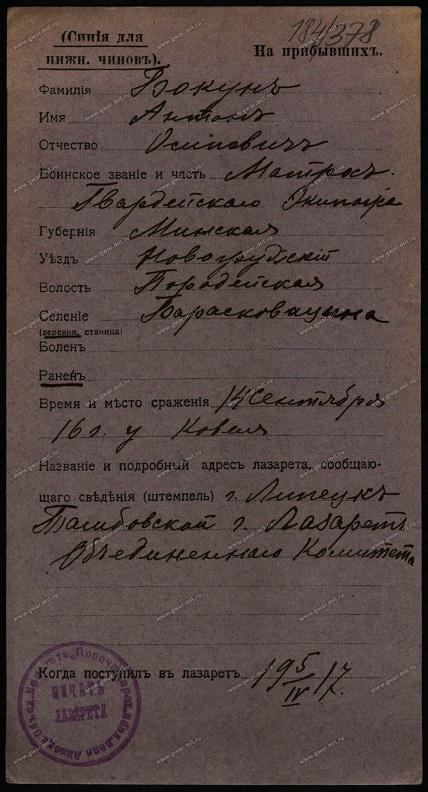 (Синія для
нижн. чиновъ).
184/378
На прибывшихъ.
Фамилія Бокунъ
Имя Антонъ
Отчество Осиповичъ
Воинское званіе и часть Матросъ
Гвардейскаго Экипажа
Губернія Минская
Уѣздъ Новогрудскій
Волость Городейская
Селеніе
(деревня, станица)
Боленъ
Раненъ
Время и мѣсто сраженія 14 Сентября
16 г. у Ковеля
Названіе и подробный адресъ лазарета, сообщаю-
щаго свѣдѣнія (штемпель) г. Липецкъ
Тамбовской г. Лазаретъ
Объединеннаго Комитета
Когда поступилъ въ лазаретъ 19 5/IV 17.
ПЕЧАТЬ
ЛАЗАРЕТА
www.gwar.mil.ru